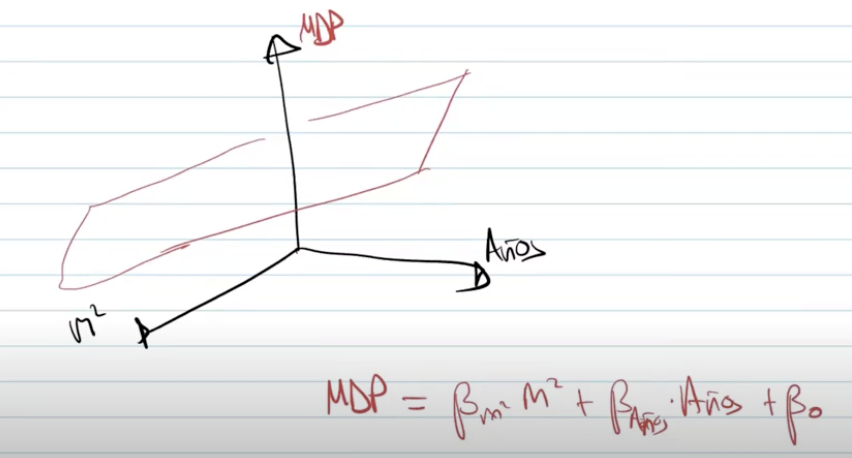 MDP
Años
m²
MDP = βm² m² + βAños · Años + β₀